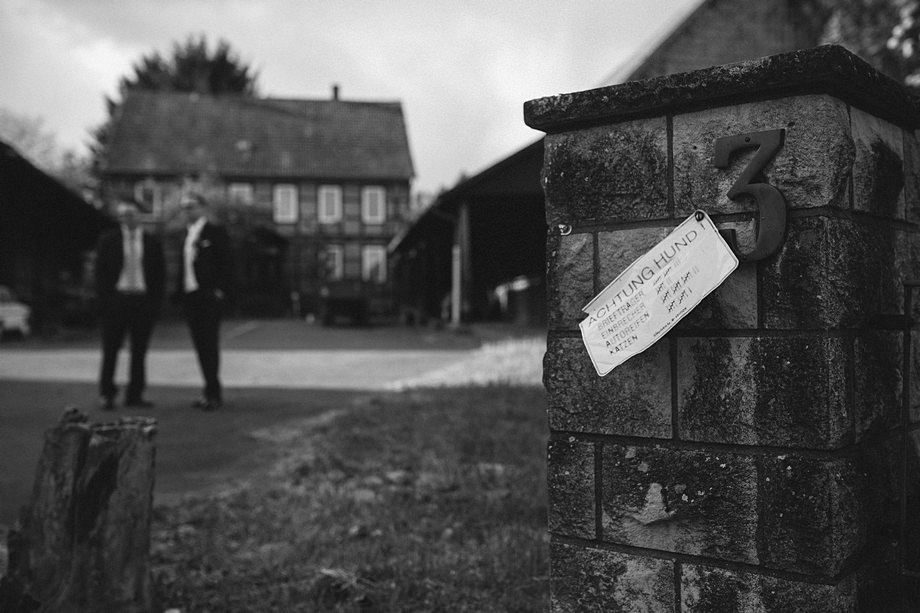 3
ACHTUNG HUND!
BRIEFTRÄGER
EINBRECHER
AUTOREIFEN
KATZEN